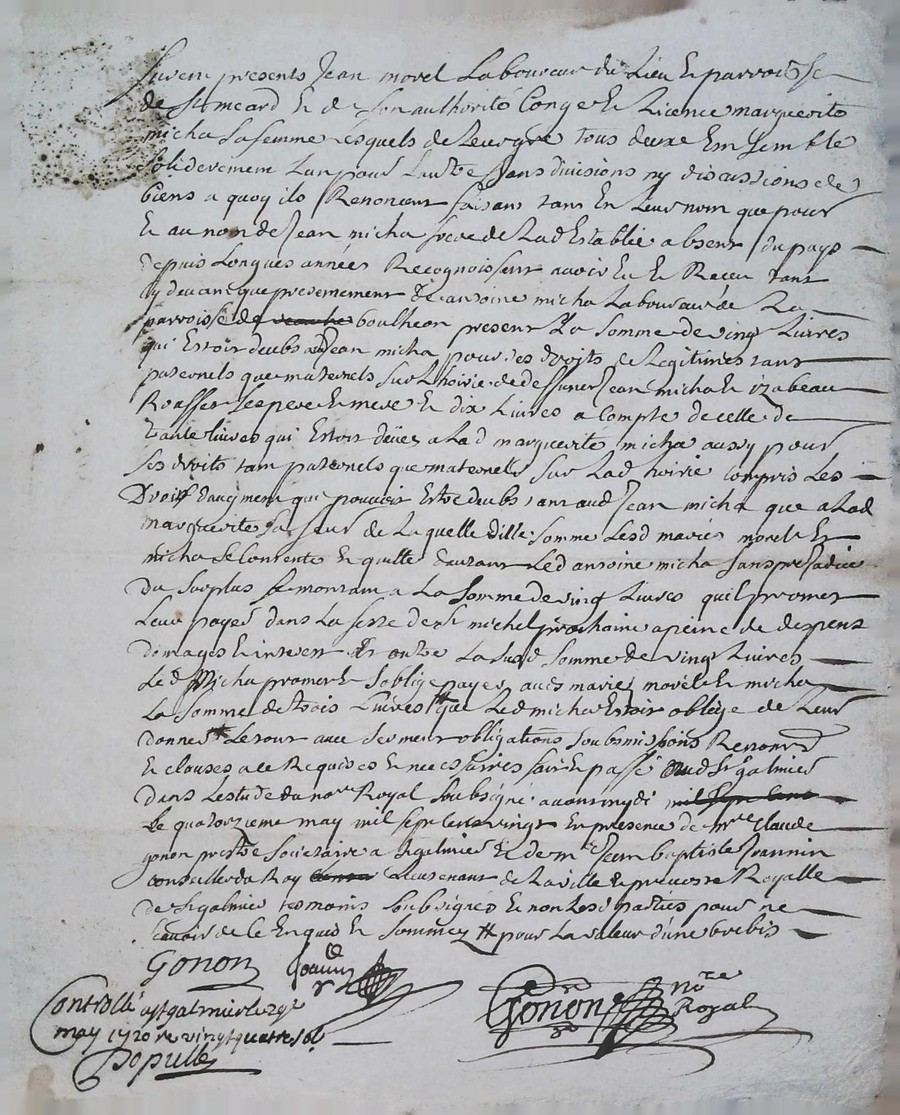 Furent presents Jean morel Laboureur du Lieu Et parroisse
de St meard Et de son authorité Congé Et Licence marguerite
micha sa femme Lesquels de Leur gré tous deux Ensemble
solidairement Lun pour Lautre sans divisions ny discussions de
biens a quoy ils Renoncent faisans tant En Leur nom que pour
Et au nom de Jean micha frere de Lad Establie absent du pays
depuis Longues années Recognoissent avoir Eu Et Receu tant
cy devant que presentement de antoine micha Laboureur de La
parroisse de boutheon present La somme de vingt Livres
qui Estoit deubs aud Jean micha pour ses droits de Legitimes tant
paternels que maternels sur Lhoirie de deffunct Jean micha Et izabeau
ses pere Et mere Et dix Livres a Compte de celle de
trante Livres qui Estoit deües a Lad marguerite micha aussy pour
ses droits tant paternels que maternels sur Lad hoirie compris Les
Droits daugment qui pouvoit Estre deubs tant aud Jean micha que a Lad
marguerite sa seur de Laquelle ditte somme Lesd mariés morel Et
micha se Contente Et quitte dautant Led antoine micha sans prejudice
du surplus se montant a La somme de vingt Livres quil promet
Leur payer dans La feste de St michel prochaine a peine de despens
domages Et interest Et outre La susd somme de vingt Livres
Led Micha promet Et soblige payer auds mariés morel Et micha
La somme de trois Livres que Led micha Estoit obligé de Leur
donner Le tout avec serment obligations soubsmissions Renond
Et clauses a ce Requises Et necessaires fait Et passé aud St galmier
Dans Lestude du nore Royal soubsigné avant midi mil sept cens
Le quatorzieme may mil sept cens vingt En presence de mre Claude
gonon prestre societaire a St galmier Et de mre Jean baptiste Joannin
conseiller du Roy Lieutenant de La ville Et prevosté Royalle
de St galmier tesmoins soubsignes Et non Lesd parties pour ne
scavoir de ce Enquis Et sommez # pour La valeur dune brebis
Gonon Joannin
Gonon nore Royal
Controllé a st galmier Le 29e
may 1720 re vingt quatre sols
Dopulle